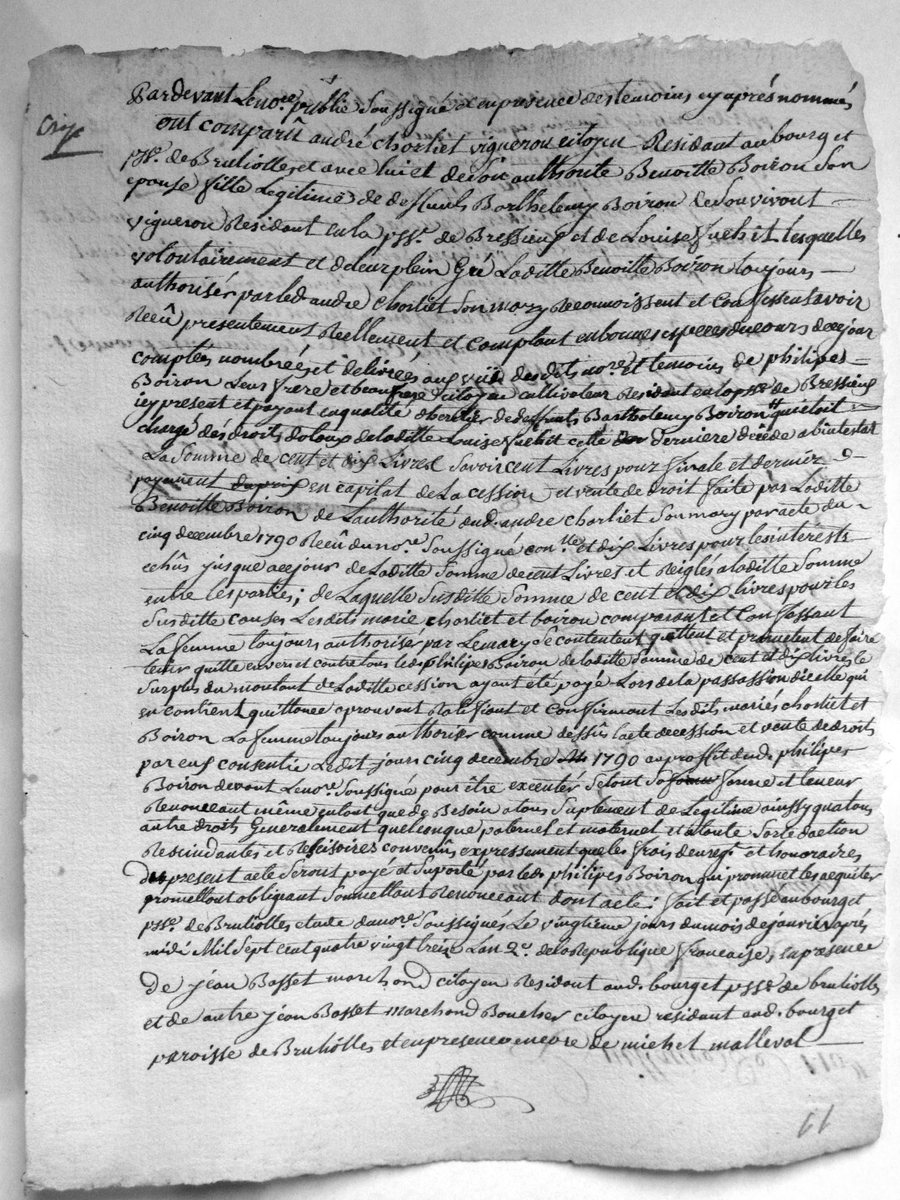 Pardevant Lenore. publie Soussigné et en presence des temoins cy après nommés
ont comparû andré chorliet vigneron citoyen Residant au bourg et
psse. de Bruliolles et avec lui et de son authorité Benoitte Boiron son
epouse fille Legitime de deffunt Barthelemy Boiron de Son vivant
vigneron Residant en la psse. de Bressieux et de Louise lesquelles
volontairement et de leur plein Gré Laditte Benoitte Boiron toujours
authorisée par led andré chorliet son mary Reconnoissent et Confessent avoir
Reçû presentement Reellement et comptant en bonnes especes du cours de ce jour
comptées nombrées et delivrées aux vûe desdits nore. et temoins de philipes
Boiron Leur frère et beau frere citoyen cultivateur Residant en la psse. de Bressieux
icy present et payant en qualité d'heritier de deffunt Barthelemy Boiron qui etoit
chargé des droits de laditte Louise cette derniere décédée abintestat
La Somme de cent et dix Livres Savoir cent Livres pour finale et dernier
payement en capital de La cession et vente de droit faite par Laditte
Benoitte Boiron de Lauthorité dud. andre Chorliet Son mary par acte du
cinq decembre 1790 Reçû du nore. Soussigné et dix Livres pour les interests
echûs jusque a ce jour de Laditte Somme de cent Livres et Reiglés a laditte Somme
entre les parties; de Laquelle Susditte Somme de cent et dix livres pour les
Susditte causes Lesdits marié chorliet et boiron comparant et Confessant
La femme toujours authoriser par Le mary Se contentent quittent et prometent de faire
tenir quitte envers et contre tous led. philipes Boiron de laditte Somme de cent et dix livres le
Surplus du montant de Laditte cession ayant été payé Lors de la passassion d'icelle qui
en contient quittance aprouvant Ratifiant et Confirmant Lesdits mariés chorliet et
Boiron La femme toujours authoriser comme dessûs lacte de cession et vente de droit
par eux consentie Ledit jours cinq decembre 1790 au proffit dud. philipes
Boiron devant Lenore. Soussigné pour être executér Selont Sa forme et teneur
Renonceant même entant que de Besoin a tous Suplement de Legitime ainssy qua tous
autre droits Generalement quelconque paternel et maternel et a toute Sorte daction
Rescindantes et Rescisoires convenûs expressement que les frais denregt. et honoraires
du present acte Seront payé et Suporté par led. philipes Boiron qui promet les acquiter
promettant obligant Soumettant Renonceant dont acte; fait et passé au bourg et
psse. de Brulliolles etude du nore. Soussignés Le vingtieme jours du mois de janvier après
midi Mil Sept cent quatre vingt treize Lan 2e. de la Republique francaise, en presence
de jean Basset marchand citoyen Residant aud. bourg et psse. de brulliolles
et de autre jean Basset marchand Boucher citoyen residant aud. bourg et
paroisse de Brulliolles et en presence encore de michel malleval
11